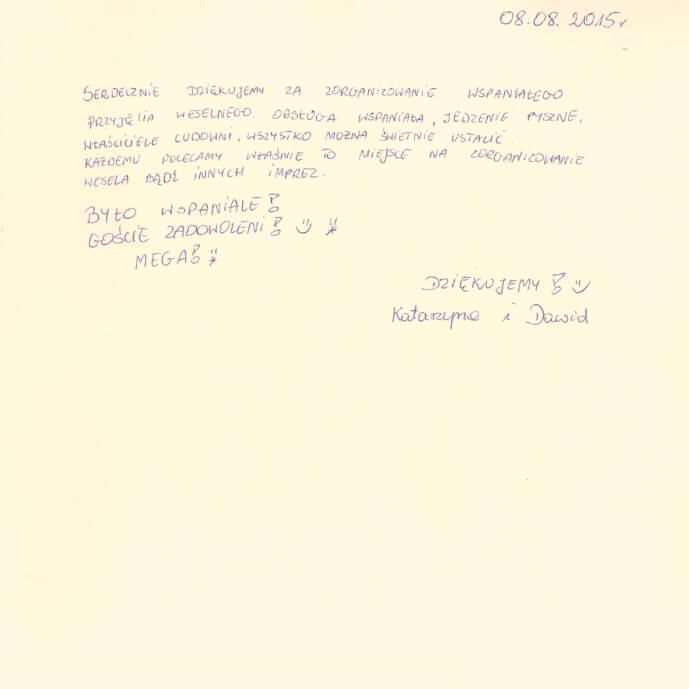 08.08.2015r
SERDECZNIE DZIĘKUJEMY ZA ZORGANIZOWANIE WSPANIAŁEGO
PRZYJĘCIA WESELNEGO. OBSŁUGA WSPANIAŁA, JEDZENIE PYSZNE,
WŁAŚCICIELE CUDOWNI, WSZYSTKO MOŻNA ŚWIETNIE USTALIĆ.
KAŻDEMU POLECAMY WŁAŚNIE TO MIEJSCE NA ZORGANIZOWANIE
WESELA BĄDŹ INNYCH IMPREZ.
BYŁO WSPANIALE!
GOŚCIE ZADOWOLENI! :) :*
MEGA! :*
DZIĘKUJEMY! :)
Katarzyna i Dawid